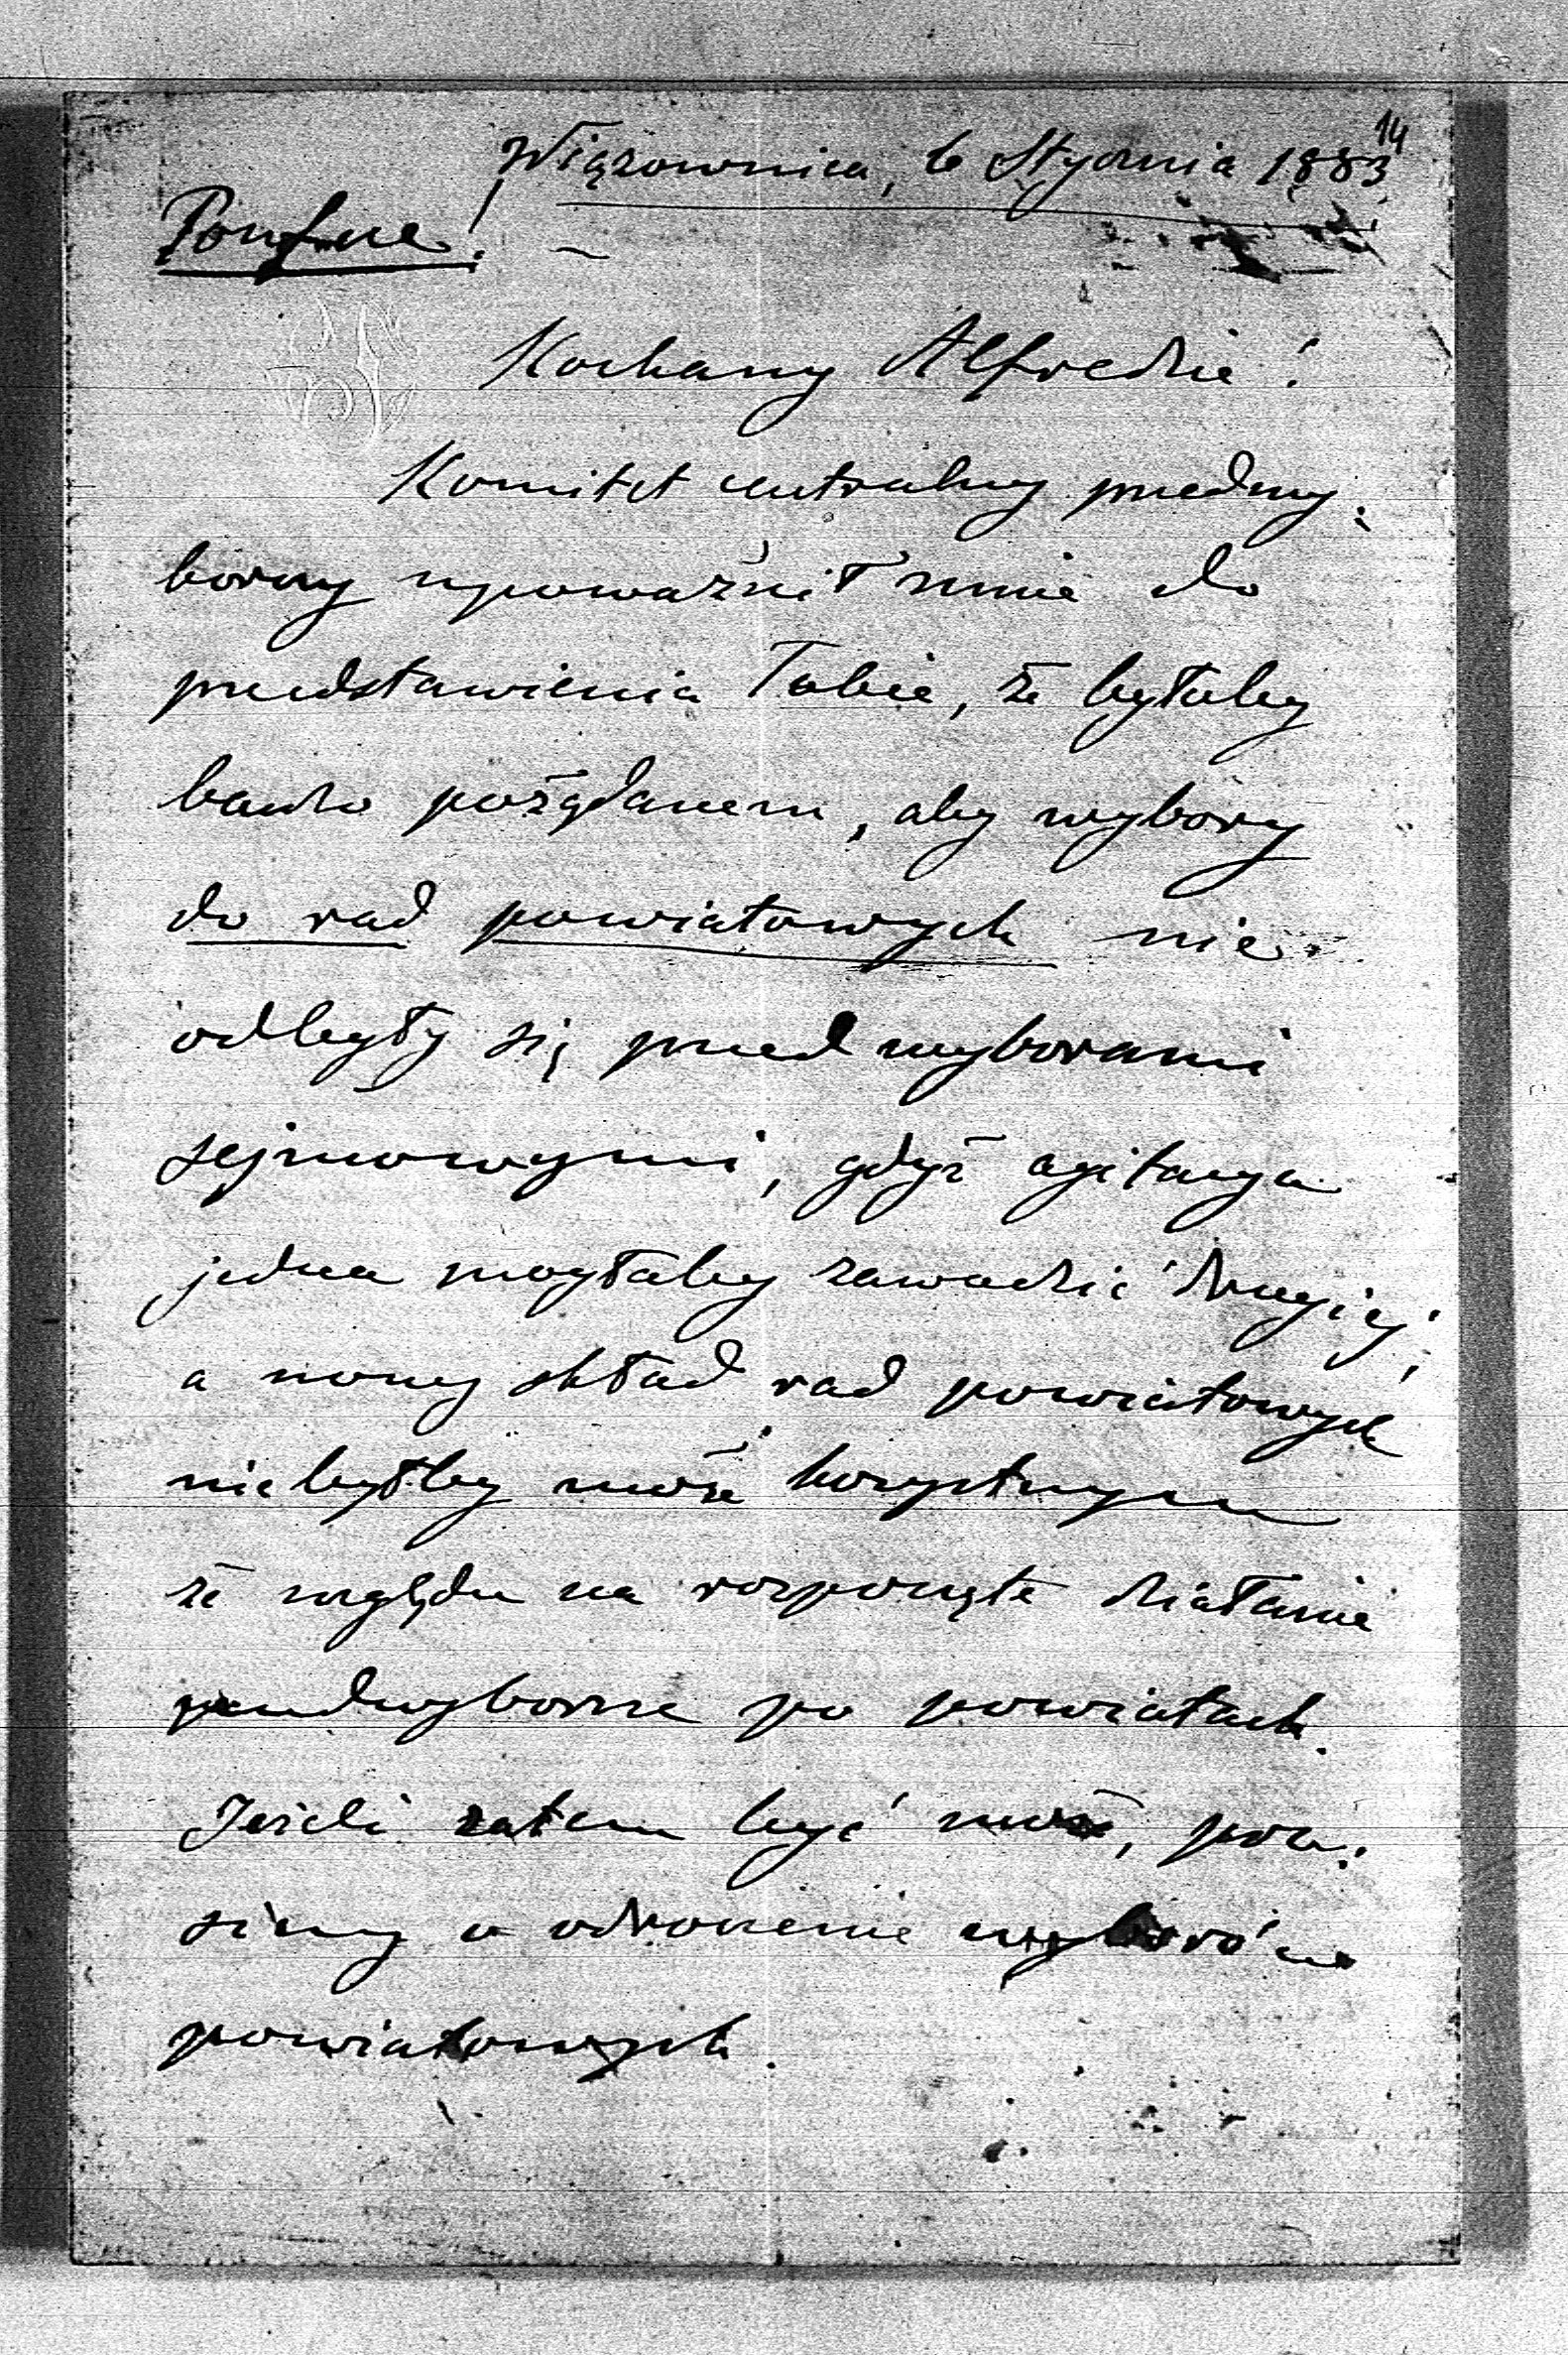 14
Wiązownica, 6 Stycznia 1883
Poufne!
Kochany Alfredzie!
Komitet centralny przedwy-
borczy upoważnił mnie do
przedstawienia Tobie, że byłoby
bardzo pożądanem, aby wybory
do rad powiatowych nie
odbyły się przed wyborami
sejmowymi, gdyż agitacya
jedna mogłaby zawadzić drugiej;
a nowy skład rad powiatowych
nie byłby może korzystnym
ze względu na rozpoczęte działanie
przedwyborcze po powiatach.
Jeżeli zatem być może, pro-
simy o odroczenie wyborów
powiatowych.